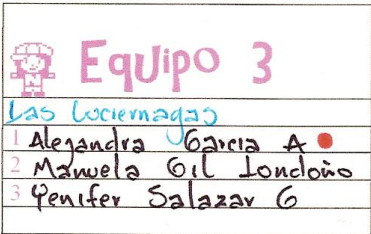 Equipo 3
Las Luciernagas
1 Alejandra Garcia A
2 Manuela Gil Londoño
3 Yenifer Salazar G